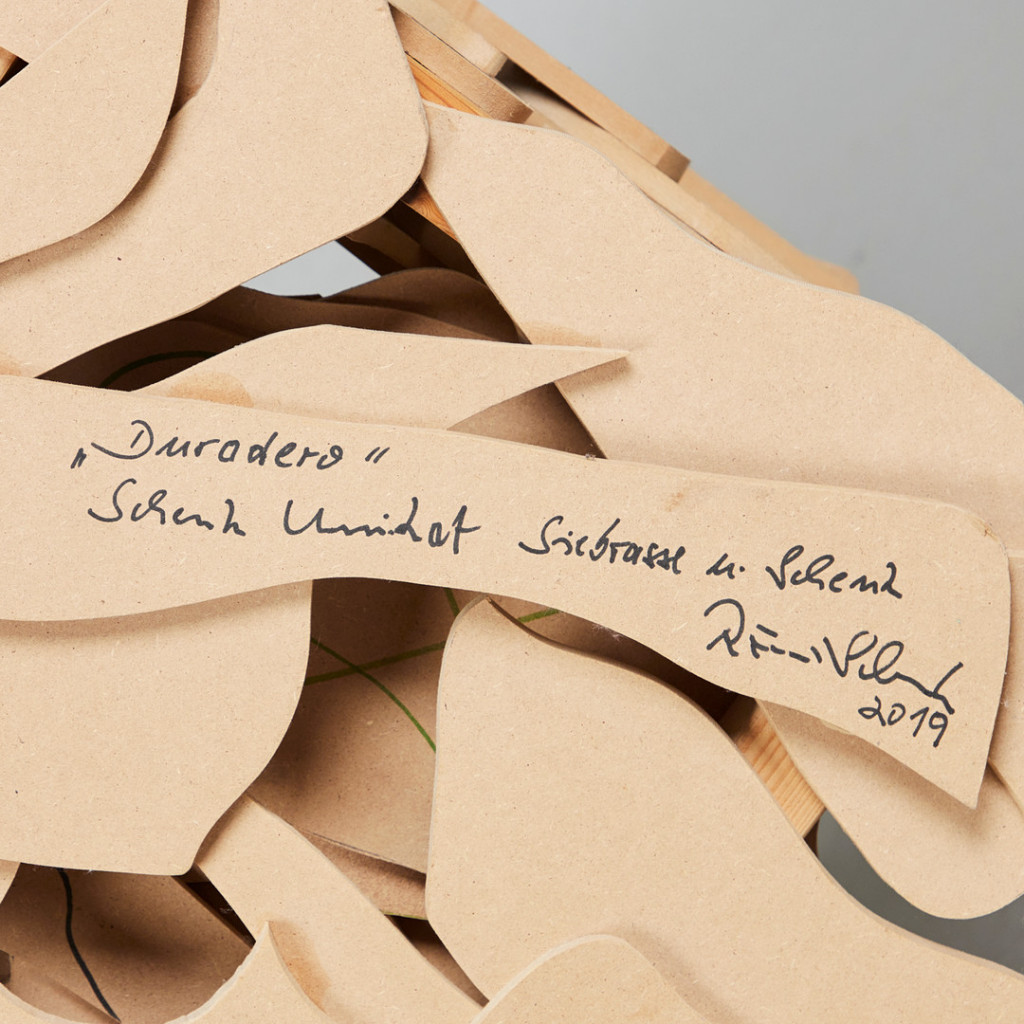 „Duradero“
Schenk Unikat Siebrasse u. Schenk
2019